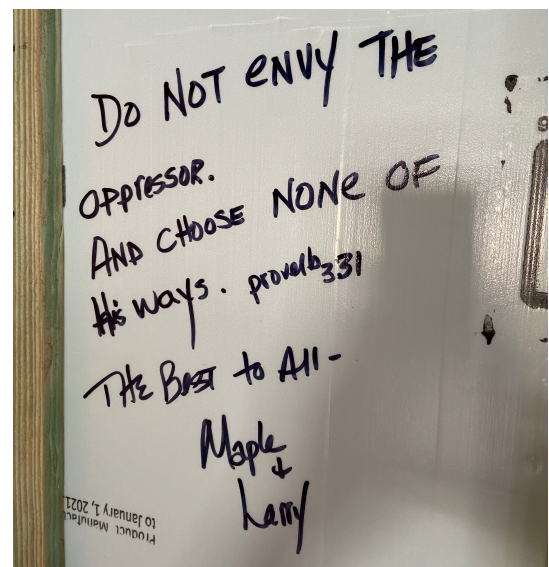 DO NOT eNVy THE
OPPRESSOR.
AND CHOOSE NONe OF
His ways. proverb 331
THE BEST to All-
Maple
+
Larry
Product Manufac
to January 1, 2021
9